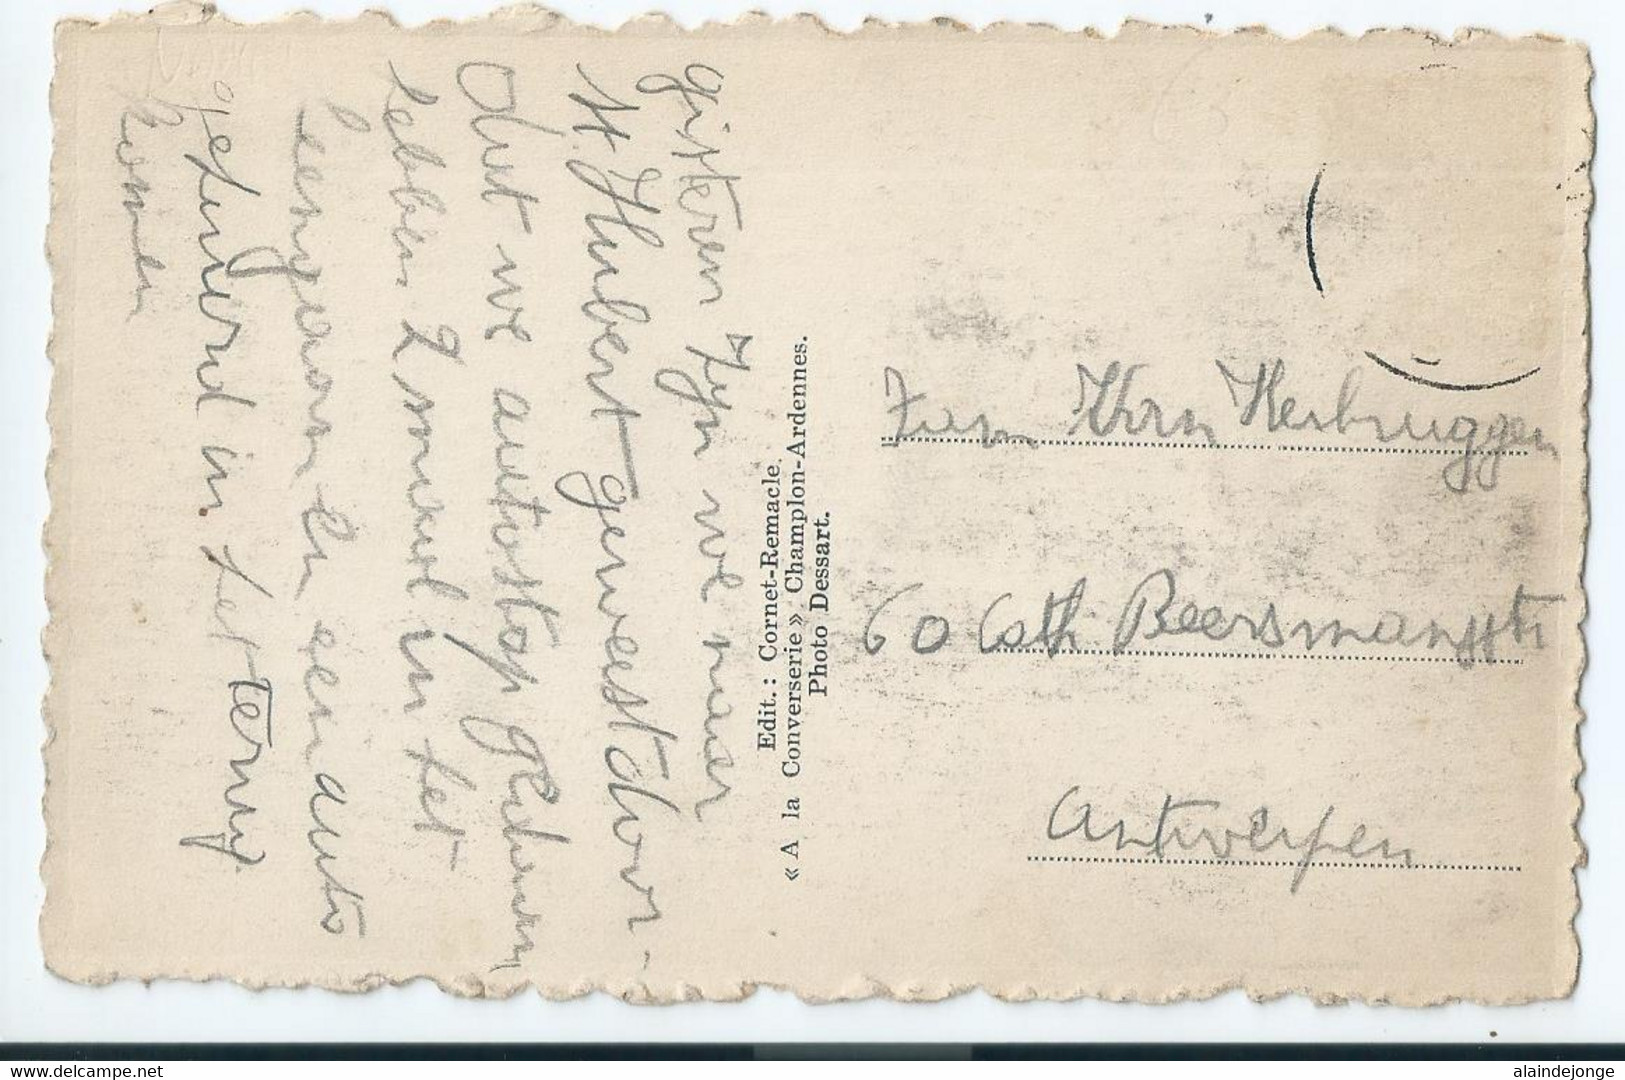 gisteren zijn we naar
St. Hubert geweest door-
dat we autostop gedaan
hebben 2 maal in het
heengaan en een auto
geduurd in het terug
komen
Edit.: Cornet-Remacle
« A la Converserie » Champlon-Ardennes.
Photo Dessart.
Fam Van Herbruggen
60 Cath Beersmansstr
Antwerpen
www.delcampe.net
alaindejonge